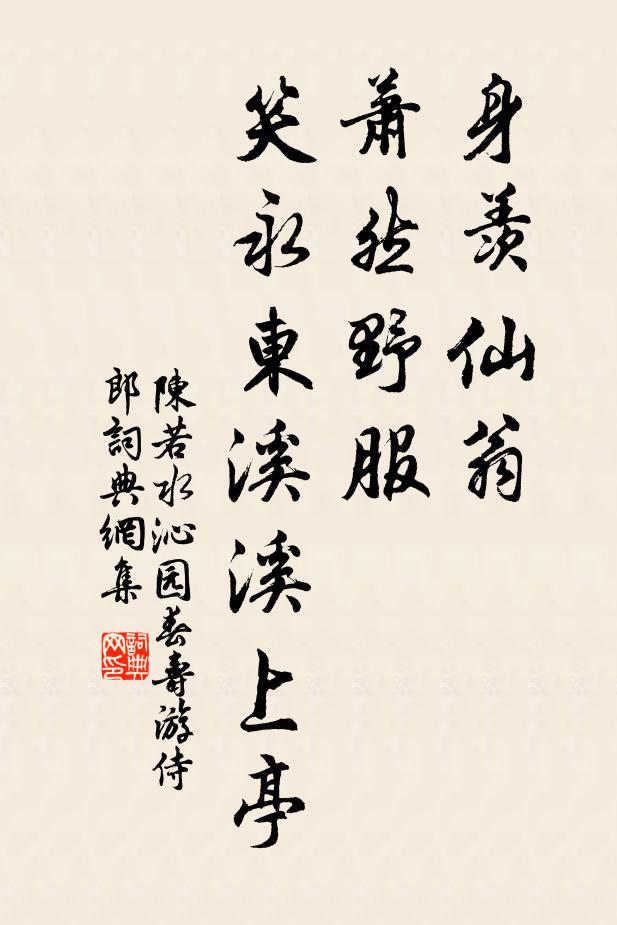 身羨仙翁
蕭然野服
笑永東溪溪上亭
陳若水沁园春壽游侍
郎詞典網集
詞典网印